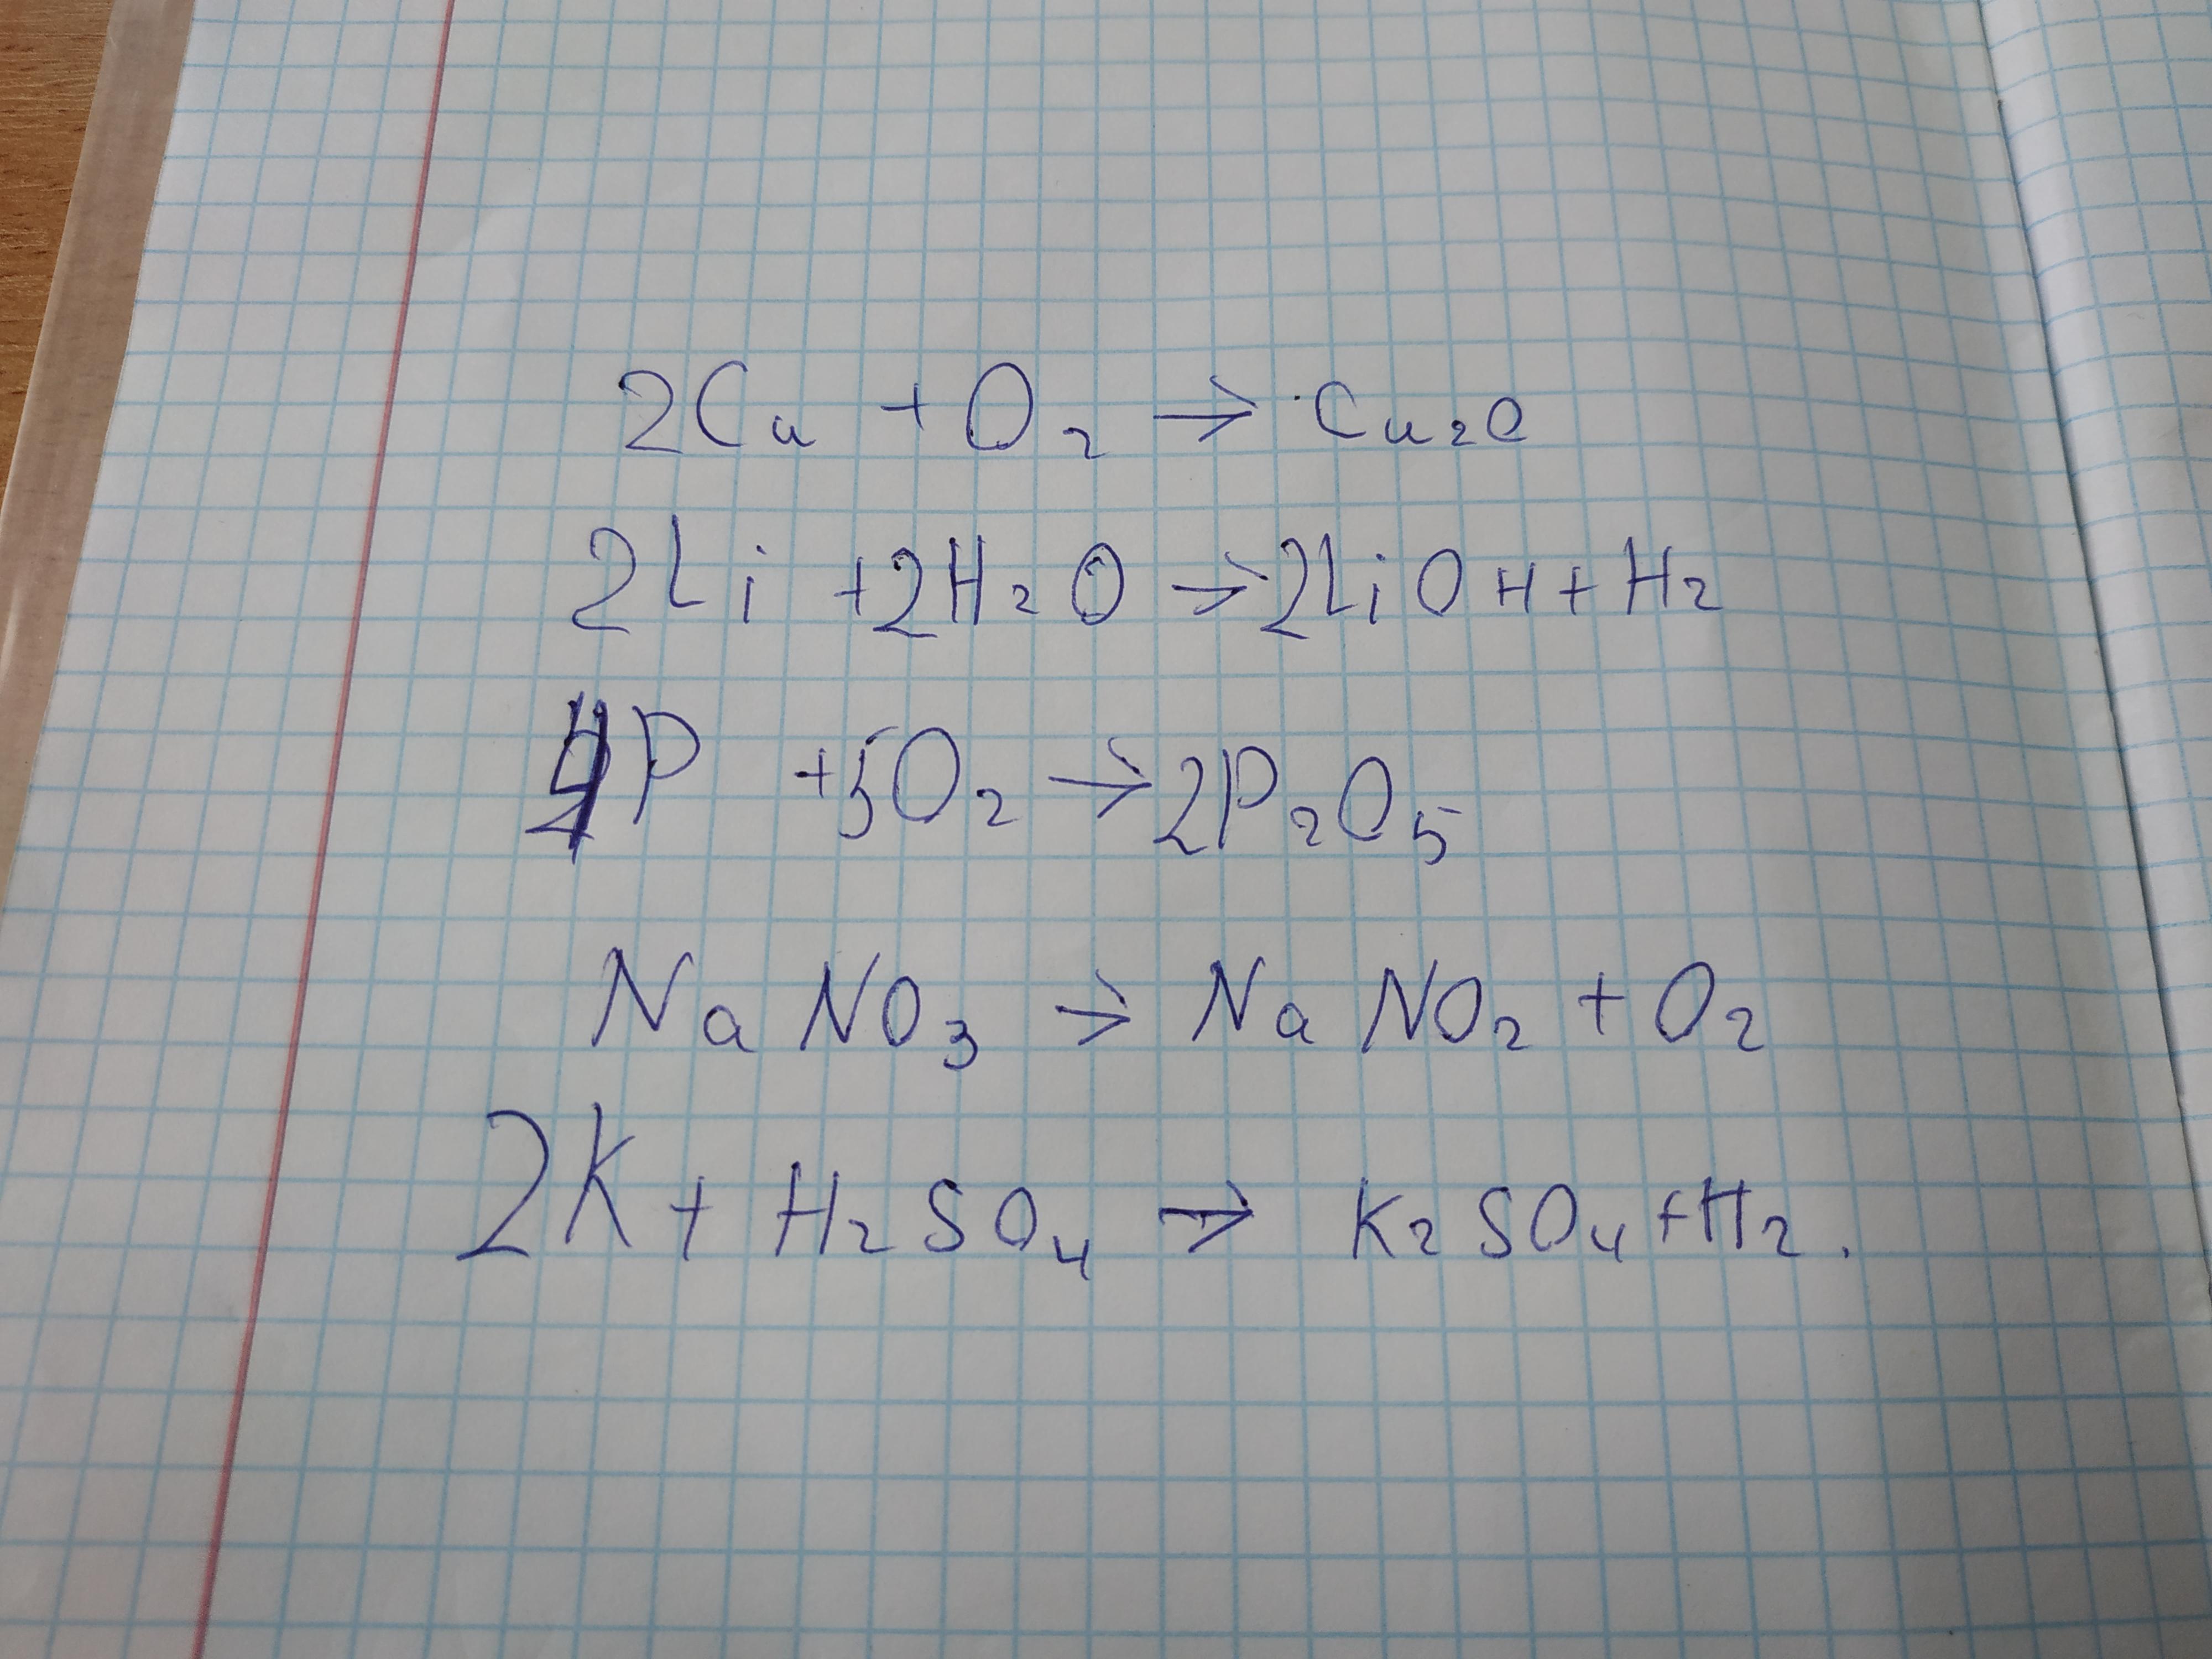 2Cu + O₂ → Cu₂O
2Li + 2H₂O → 2LiOH + H₂
4P + 5O₂ → 2P₂O₅
NaNO₃ → NaNO₂ + O₂
2K + H₂SO₄ → K₂SO₄ + H₂.